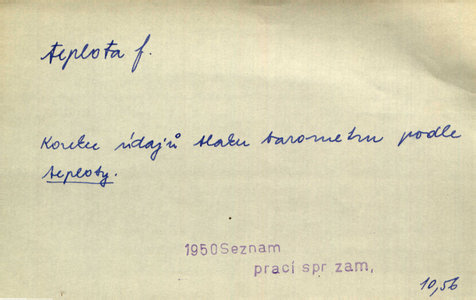 teplota f.
údajů tlaku barometru podle
teploty.
1950 Seznam
prací spr zam,
10,56